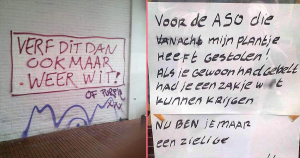 VERF DIT DAN
OOK MAAR
WEER WIT!
OF PURPER
Voor de ASO die
VANACHT mijn plantje
HEEFT GESTOLEN!
Als je gewoon had gebeld
had je een zakje wiet
kunnen krijgen
NU BEN je MAAR
een zielige